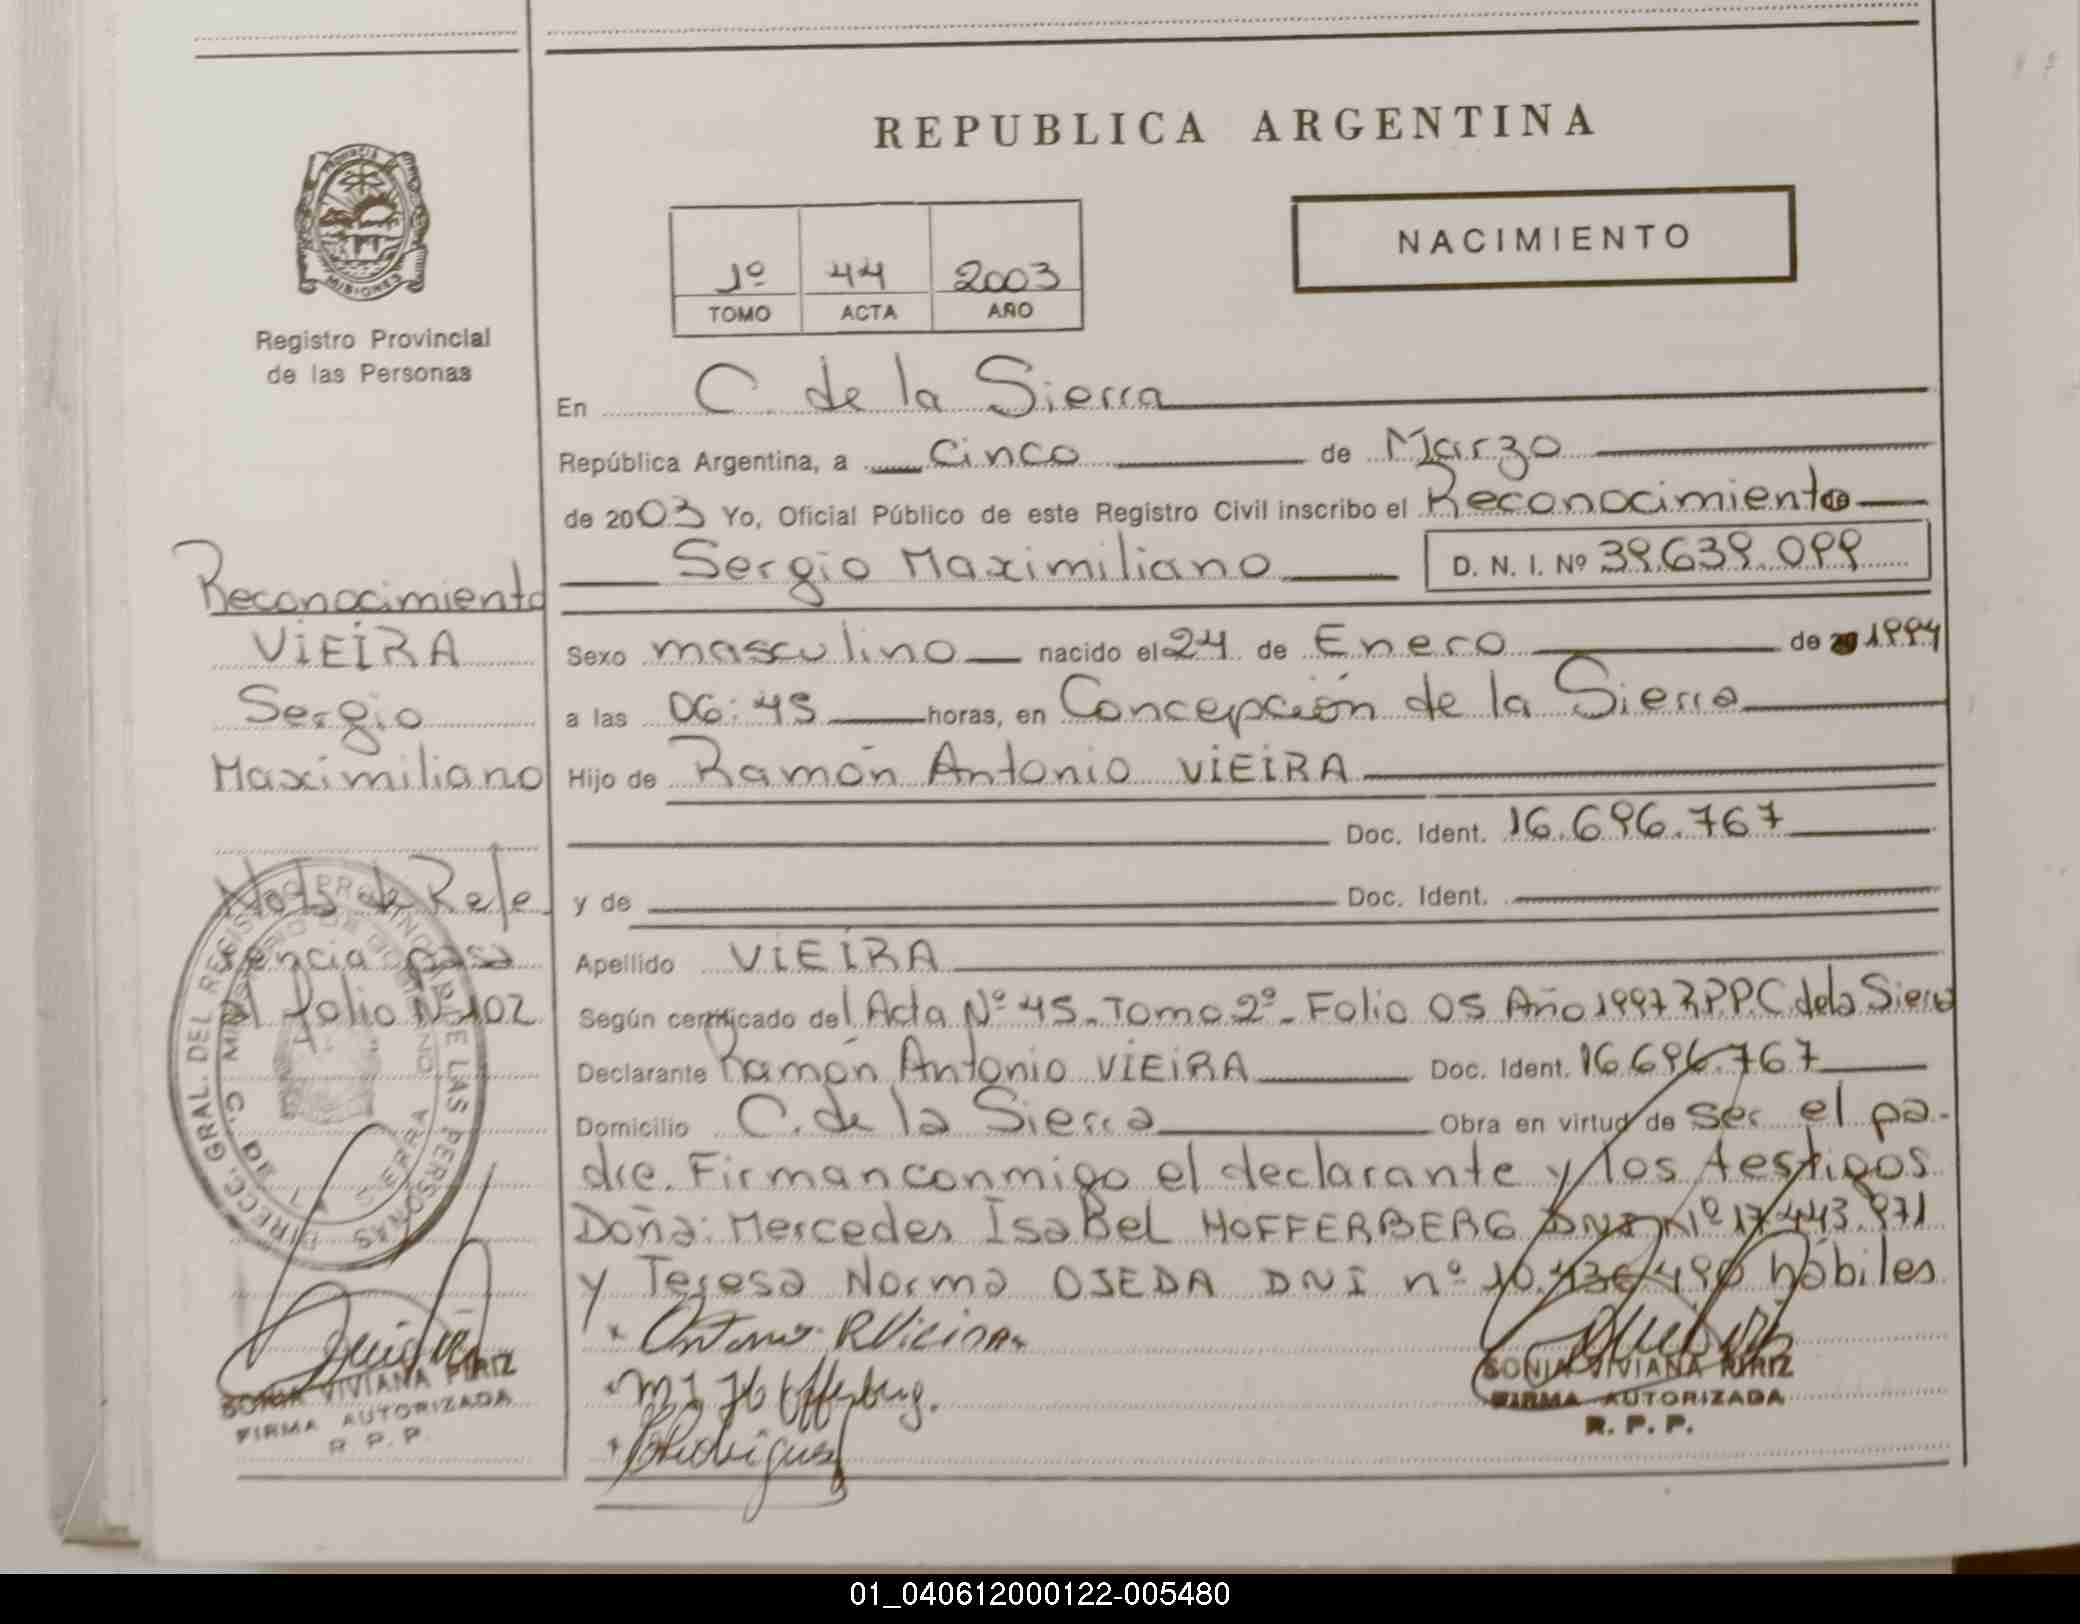 REPUBLICA ARGENTINA
PROVINCIA DE
MISIONES
Registro Provincial
de las Personas
1º 44 2003
TOMO ACTA AÑO
NACIMIENTO
En C. de la Sierra
República Argentina, a cinco de Marzo
de 2003 Yo, Oficial Público de este Registro Civil inscribo el Reconocimiento de
Sergio Maximiliano D. N. I. Nº 39.639.099
Sexo masculino nacido el 24 de Enero de 1994
a las 06:45 horas, en Concepción de la Sierra
Hijo de Ramón Antonio VIEIRA
Doc. Ident. 16.696.767
y de Doc. Ident.
Apellido VIEIRA
Según certificado del Acta Nº 45. Tomo 2º. Folio 05 Año 1997 R.P.P. C de la Sierra
Declarante Ramón Antonio VIEIRA Doc. Ident. 16.696.767
Domicilio C. de la Sierra Obra en virtud de ser el pa-
dre. Firman conmigo el declarante y los testigos
Doña: Mercedes Isabel HOFFERBERG DNI Nº 17.443.971
y Teresa Norma OJEDA DNI nº 10.436.490 hábiles
SONIA VIVIANA PIRIZ
FIRMA AUTORIZADA
R. P. P.
Reconocimiento
VIEIRA
Sergio
Maximiliano
Nota de Refe
rencia pasa
al folio Nº 102
SONIA VIVIANA PIRIZ
FIRMA AUTORIZADA
R. P. P.
01_040612000122-005480